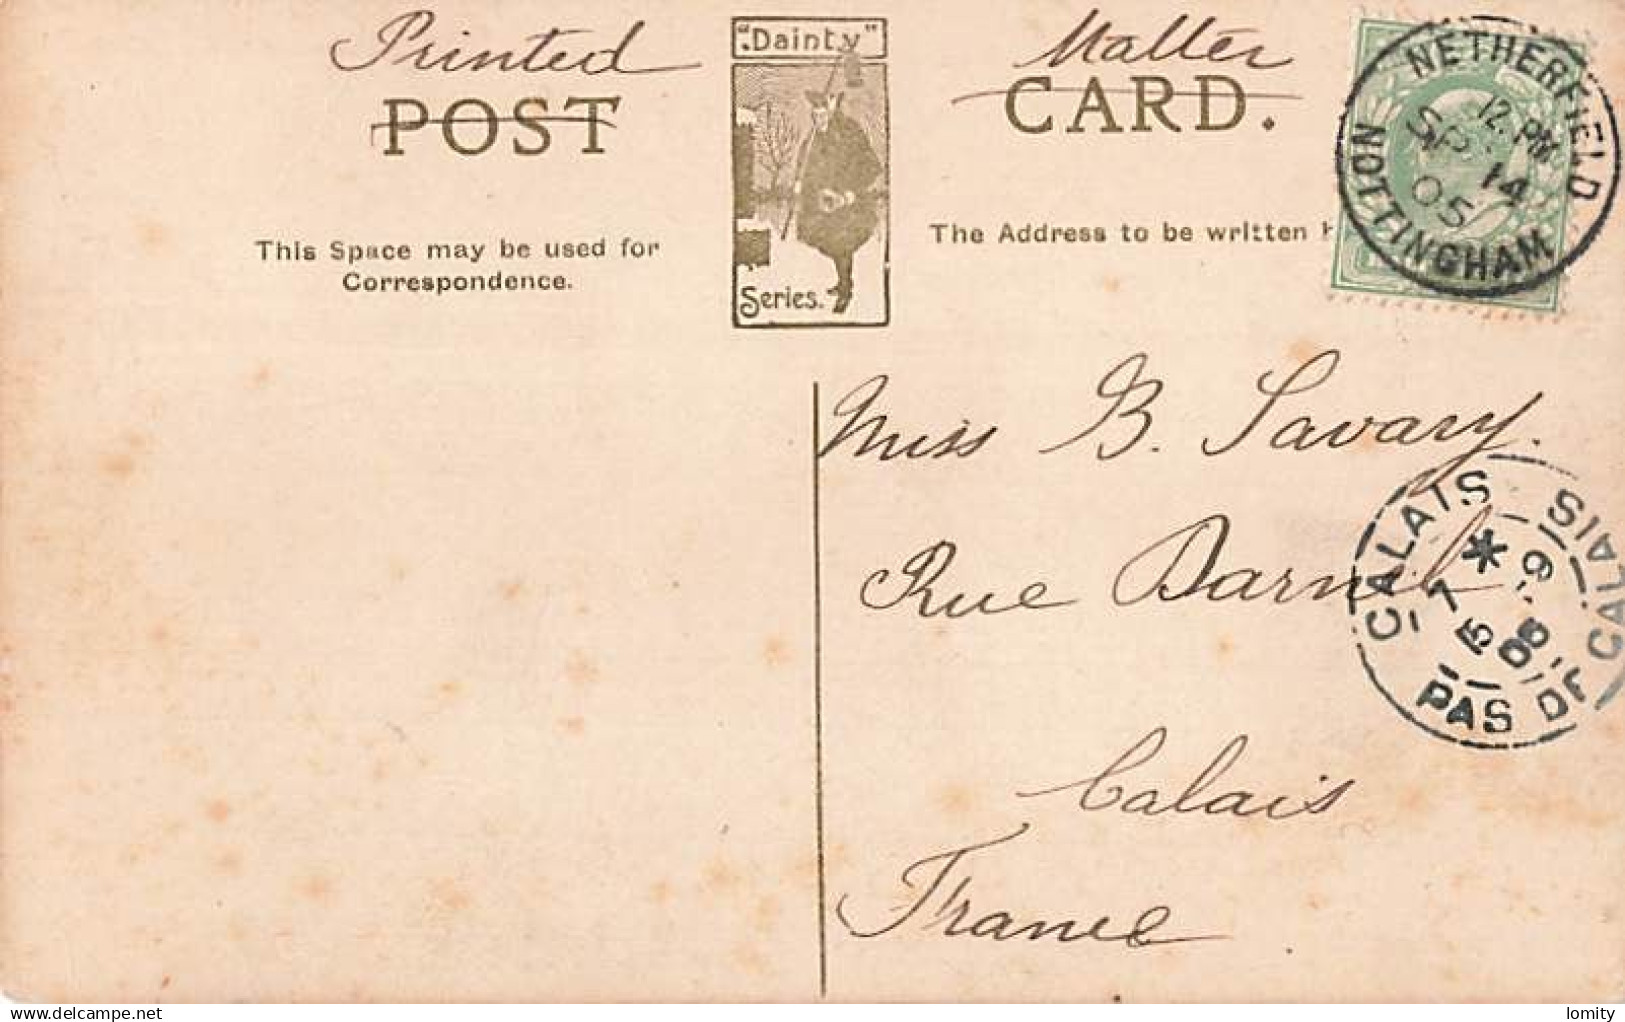 Printed Matter
POST CARD.
"Dainty"
Series.
This Space may be used for
Correspondence.
The Address to be written h
NETHERFIELD
12. PM
SP 14
05
NOTTINGHAM
Miss B. Savary.
Rue Darnel
Calais
France
CALAIS CALAIS
*
PAS DE
delcampe.net
lomity